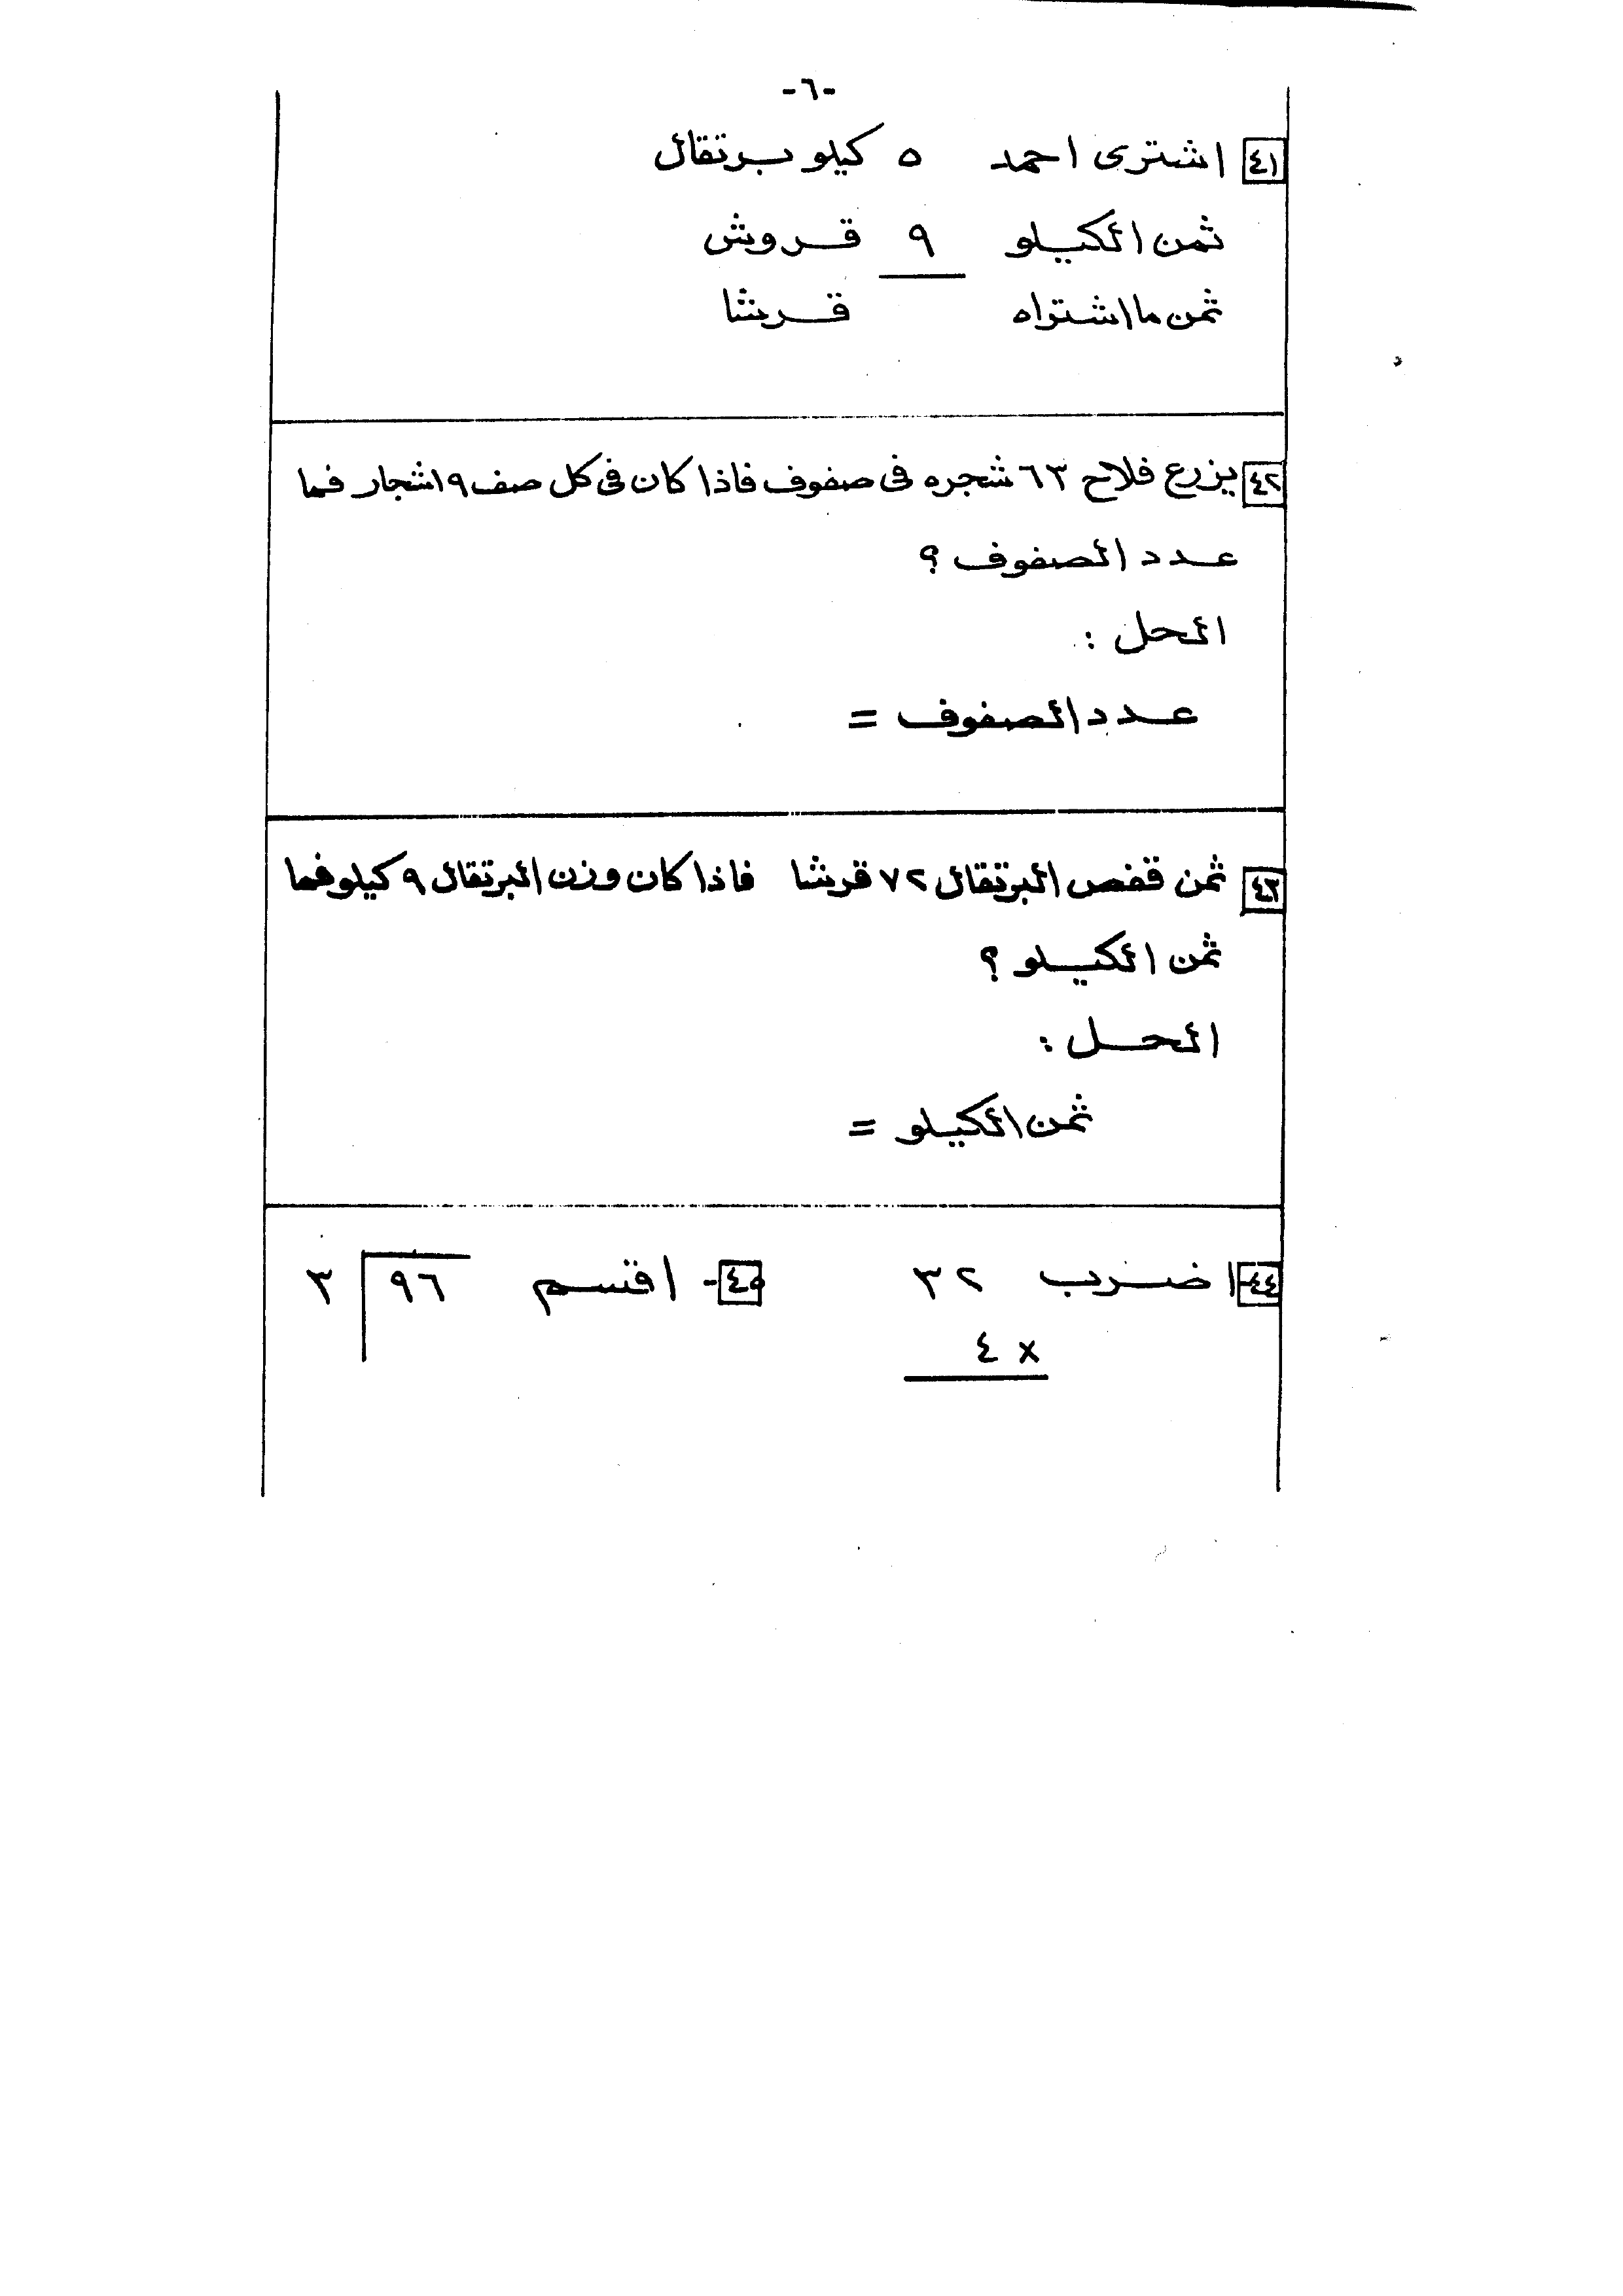 -٦-
٤١ اشترى احمد ٥ كيلو برتقال
ثمن الكيلو ٩ قروش
ثمن ما اشتراه قرشا
٤٢ يزرع فلاح ٦٣ شجره فى صفوف فاذا كان فى كل صف ٩ اشجار فما
عدد الصفوف ؟
الحل :
عدد الصفوف =
٤٣ ثمن قفص البرتقال ٧٢ قرشا فاذا كان وزن البرتقال ٩ كيلو فما
ثمن الكيلو ؟
الحل :
ثمن الكيلو =
٤٤- اضرب ٣٢
× ٤
٤٥- اقسم ٩٦ ٣